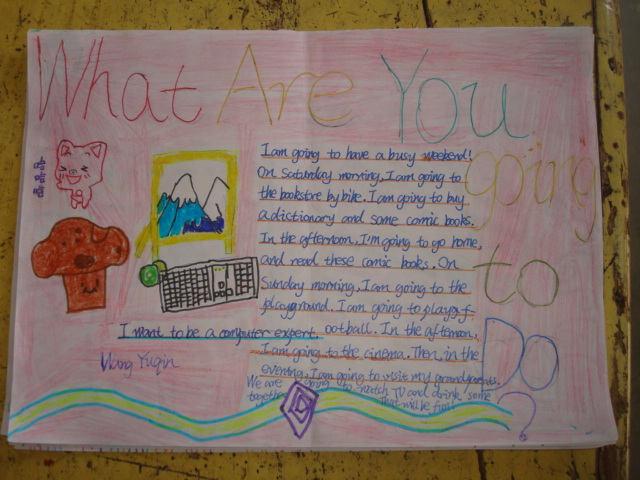 What Are You
going
to
Do
?
I am going to have a busy weekend!
On Saturday morning, I am going to
the bookstre by bike. I am going to buy
a dictionary and some comic books.
In the afternoon, I'm going to go home,
and read these comic books. On
Sunday morning, I am going to the
playground. I am going to play f-
ootball. In the afternoon,
I am going to the cinema. Then, in the
evening, I am going to visit my grandparents.
We are going to watch TV and drink some
together. That will be fun!
I want to be a computer expert.
Wang Yuqin